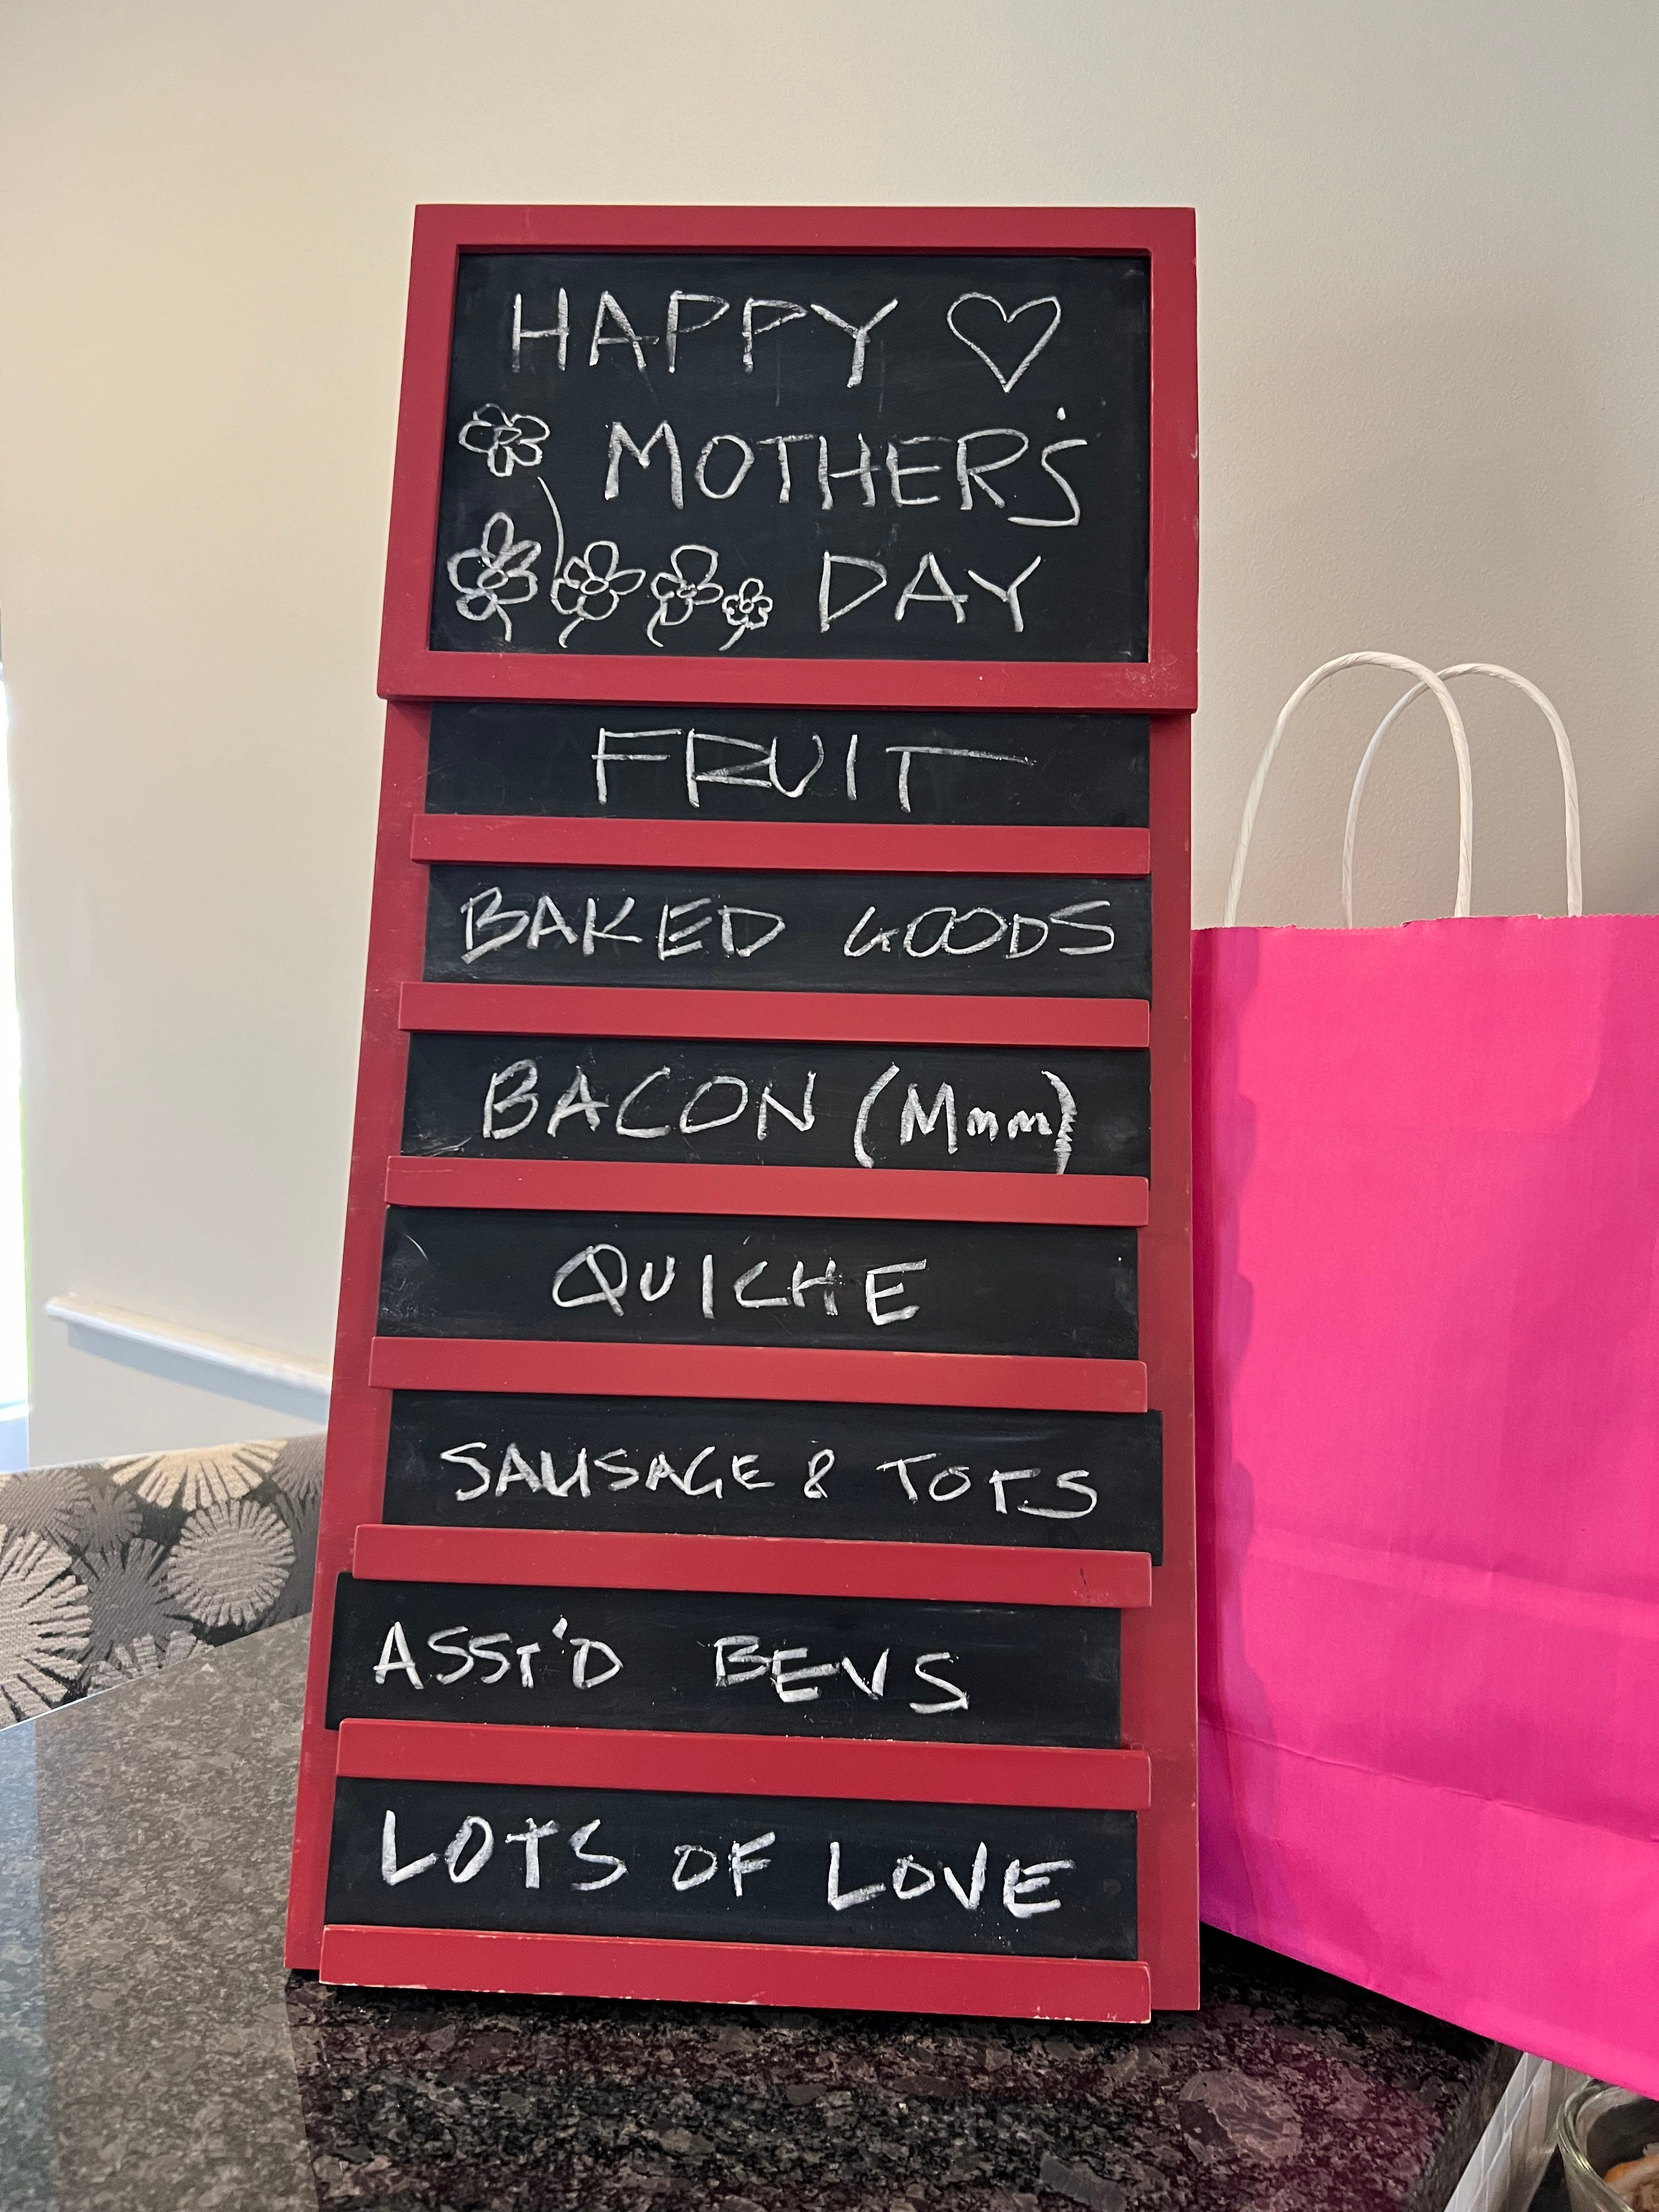 HAPPY
MOTHER'S
DAY
FRUIT
BAKED GOODS
BACON (Mmm)
QUICHE
SAUSAGE & TOTS
ASST'D BEVS
LOTS OF LOVE